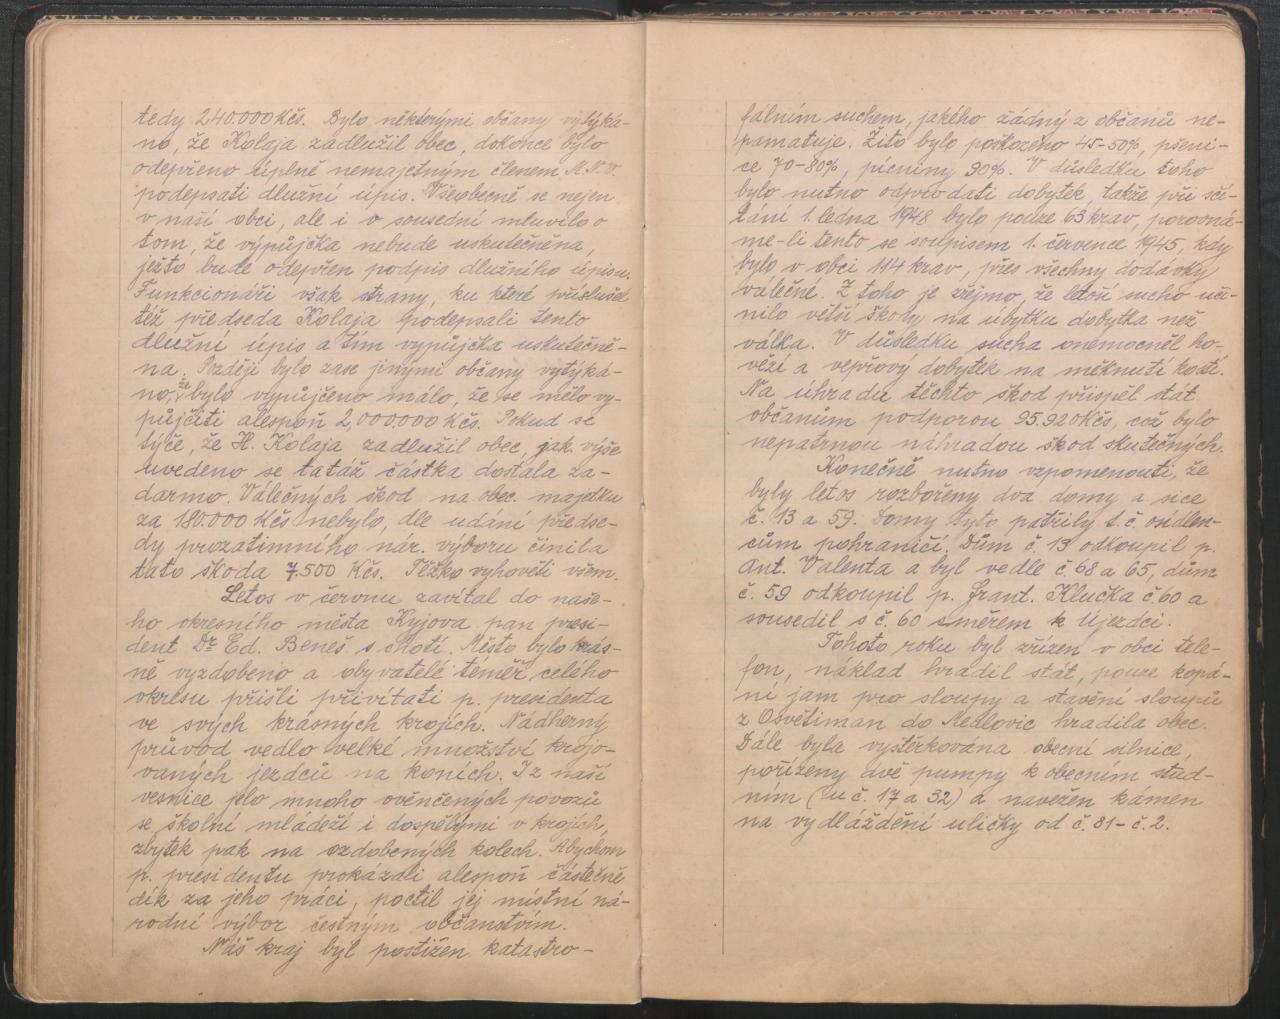 tedy 240.000 Kčs. Bylo některými občany vytýká-
no, že Kolaja zadlužil obec, dokonce bylo
odepřeno úplně nemajetným členem M.N.V.
podepsati dlužní úpis. Všeobecně se nejen
v naší obci, ale i v sousední mluvilo o
tom, že výpůjčka nebude uskutečněna,
ješto bude odepřen podpis dlužního úpisu.
Funkcionáři však strany, ku které příslušel
též předseda Kolaja podepsali tento
dlužní úpis a tím vypůjčka uskutečně-
na. Později bylo zase jinými občany vytýká-
no, že bylo vypůjčeno málo, že se mělo vy-
půjčiti alespoň 2,000.000 Kčs. Pokud se
týče, že H. Kolaja zadlužil obec, jak výše
uvedeno se tatáž částka dostala za-
darmo. Válečných škod na obec. majetku
za 180.000 Kčs nebylo, dle udání předse-
dy prozatimního nár. výboru činila
tato škoda 7.500 Kčs. Těžko vyhověti všem.
Letos v červnu zavítal do naše-
ho okresního města Kyjova pan presi-
dent Dr Ed. Beneš s chotí. Město bylo krás-
ně vyzdobeno a obyvatelé téměř celého
okresu přišli přivítati p. presidenta
ve svých krásných krojích. Nádherný
průvod vedlo velké množství krojo-
vaných jezdců na koních. I z naší
vesnice jelo mnoho ověnčených povozů
se školní mládeží i dospělými v krojích,
zbytek pak na ozdobených kolech. Abychom
p. presidentu prokázali alespoň částečně
dík za jeho práci, poctil jej místní ná-
rodní výbor čestným občanstvím.
Náš kraj byl postižen katastro-
fálním suchem, jakého žádný z občanů ne-
pamatuje. Žito bylo poškozeno 45-50%, pšeni-
ce 70-80%, pícniny 90%. V důsledku toho
bylo nutno odprodati dobytek, takže při sčí-
tání 1. ledna 1948 bylo pouze 63 krav, porovná-
me-li tento se soupisem 1. července 1945, kdy
bylo v obci 114 krav, přes všechny dodávky
válečné. Z toho je zřejmo, že letoší sucho uči-
nilo větší škody na úbytku dobytka než
válka. V důsledku sucha onemocněl ho-
vězí a vepřový dobytek na měknutí kostí.
Na úhradu těchto škod přispěl stát
občanům podporou 95.920 Kčs, což bylo
nepatrnou náhradou škod skutečných.
Konečně nutno vzpomenouti, že
byly letos rozbořeny dva domy a sice
č. 13 a 59. Domy tyto patřily t. č. osídlen-
cům pohraničí. Dům č. 13 odkoupil p.
Ant. Valenta a byl vedle č. 68 a 65, dům
č. 59 odkoupil p. Frant. Klučka č. 60 a
sousedil s č. 60 směrem k Újezdci.
Tohoto roku byl zřízen v obci tele-
fon, náklad hradil stát, pouze kopá-
ní jam pro sloupy a stavění sloupů
z Osvětiman do Medlovic hradila obec.
Dále byla vyštěrkována obecní silnice,
pořízeny dvě pumpy k obecním stud-
ním (u č. 17 a 32) a navežen kámen
na vydláždění uličky od č. 81 - č. 2.